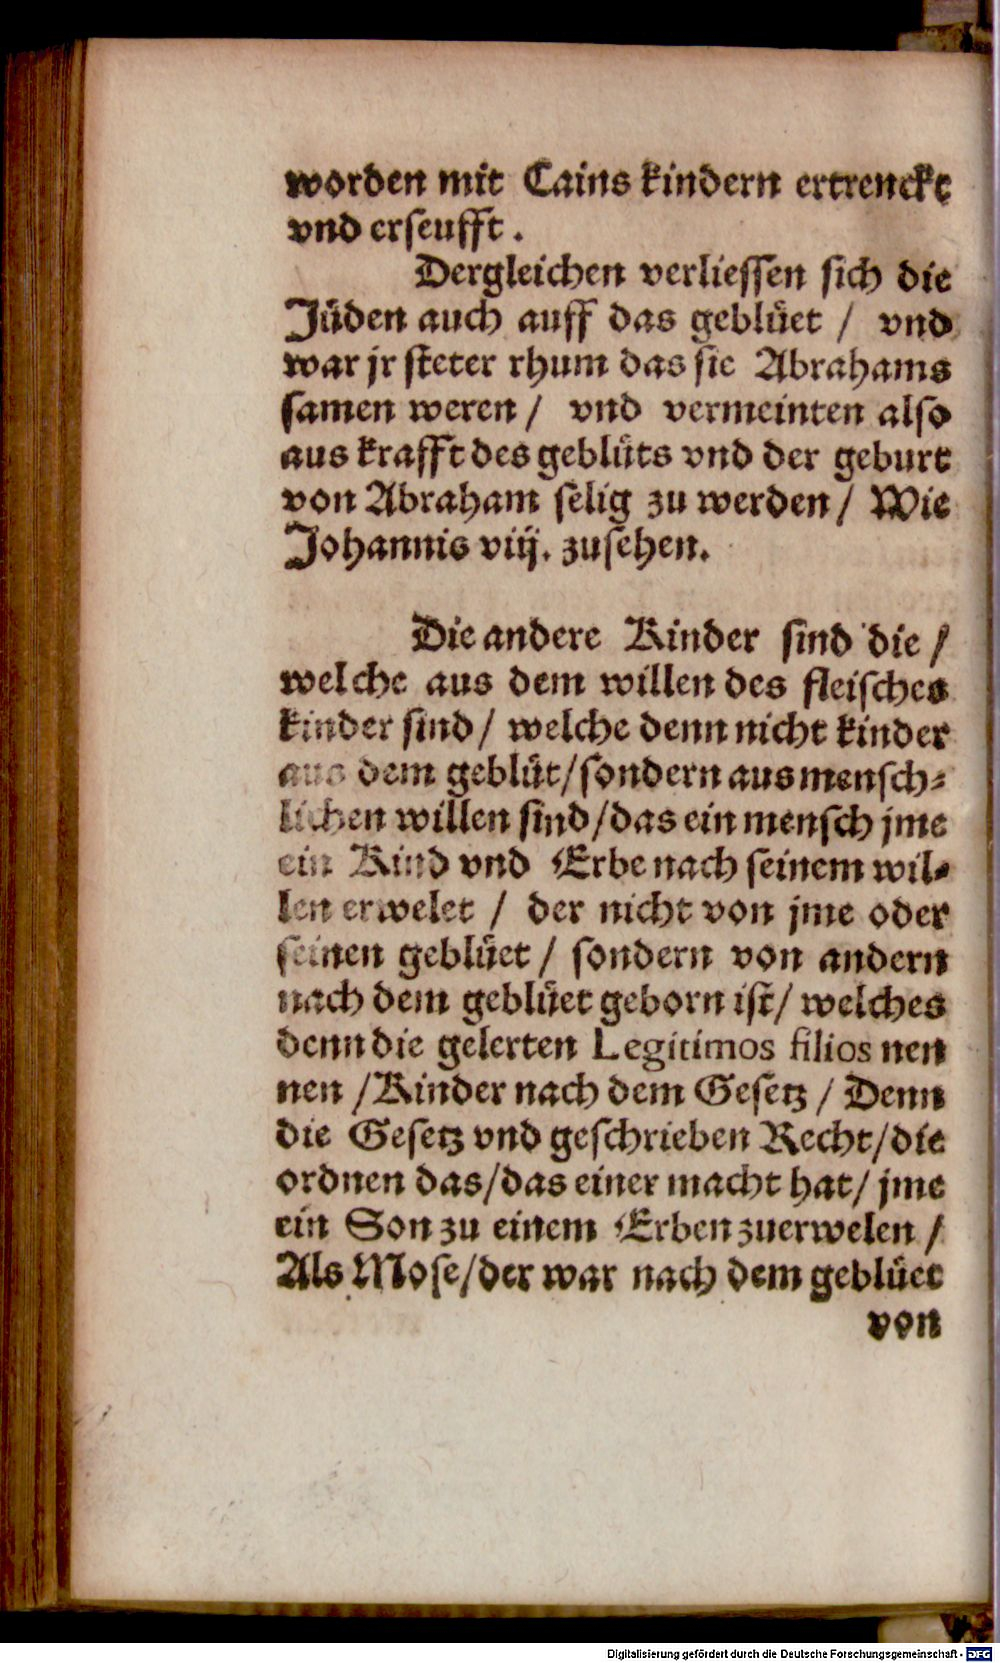 worden mit Cains kindern ertrenckt
vnd erseufft.
Dergleichen verliessen sich die
Jüden auch auff das geblüet / vnd
war jr steter rhum das sie Abrahams
samen weren / vnd vermeinten also
aus krafft des geblüts vnd der geburt
von Abraham selig zu werden / Wie
Johannis viij. zusehen.
Die andere Kinder sind die /
welche aus dem willen des fleisches
kinder sind / welche denn nicht kinder
aus dem geblüt / sondern aus mensch-
lichen willen sind / das ein mensch jme
ein Kind vnd Erbe nach seinem wil-
len erwelet / der nicht von jme oder
seinen geblüet / sondern von andern
nach dem geblüet geborn ist / welches
denn die gelerten Legitimos filios nen
nen / Kinder nach dem Gesetz / Denn
die Gesetz vnd geschrieben Recht / die
ordnen das / das einer macht hat / jme
ein Son zu einem Erben zuerwelen /
Als Mose / der war nach dem geblüet
von
Digitalisierung gefördert durch die Deutsche Forschungsgemeinschaft - DFG